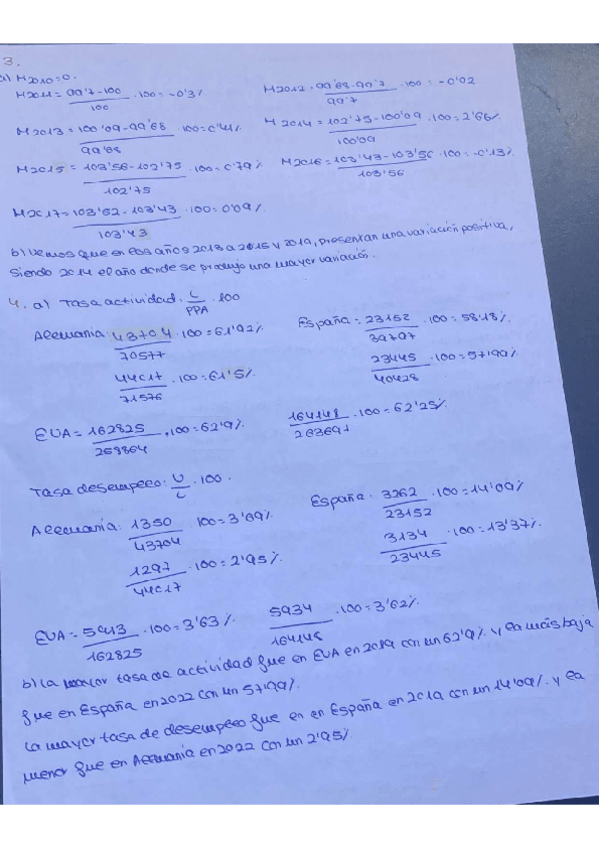 3.
a) M2010=0.
M2011 = 99'7-100 / 100 · 100 = -0'3%
M2012 = 99'68-99'7 / 99'7 · 100 = -0'02
M2013 = 100'09-99'68 / 99'68 · 100 = 0'41%
M2014 = 102'75-100'09 / 100'09 · 100 = 2'66%
M2015 = 103'56-102'75 / 102'75 · 100 = 0'79%
M2016 = 103'43-103'56 / 103'56 · 100 = -0'13%
M2017 = 103'52-103'43 / 103'43 · 100 = 0'09%
b) Vemos que en los años 2013 a 2015 y 2019, presentan una variación positiva,
siendo 2014 el año donde se produjo una mayor variación.
4. a) Tasa actividad: L / PPA · 100
Alemania: 43704 / 70577 · 100 = 61'92%
España = 23152 / 39797 · 100 = 58'18%
44017 / 71576 · 100 = 61'5%
23445 / 40428 · 100 = 57'99%
EUA = 162825 / 258864 · 100 = 62'9%
164148 / 263691 · 100 = 62'25%
Tasa desempleo: U / L · 100.
Alemania: 1350 / 43704 · 100 = 3'09%
España: 3262 / 23152 · 100 = 14'09%
1297 / 44017 · 100 = 2'95%
3134 / 23445 · 100 = 13'37%
EUA = 5913 / 162825 · 100 = 3'63%
5934 / 164148 · 100 = 3'62%
b) La mayor tasa de actividad fue en EUA en 2019 con un 62'9% y la más baja
fue en España en 2022 con un 57'99%.
La mayor tasa de desempleo fue en en España en 2019 con un 14'09%. y la
menor fue en Alemania en 2022 con un 2'95%